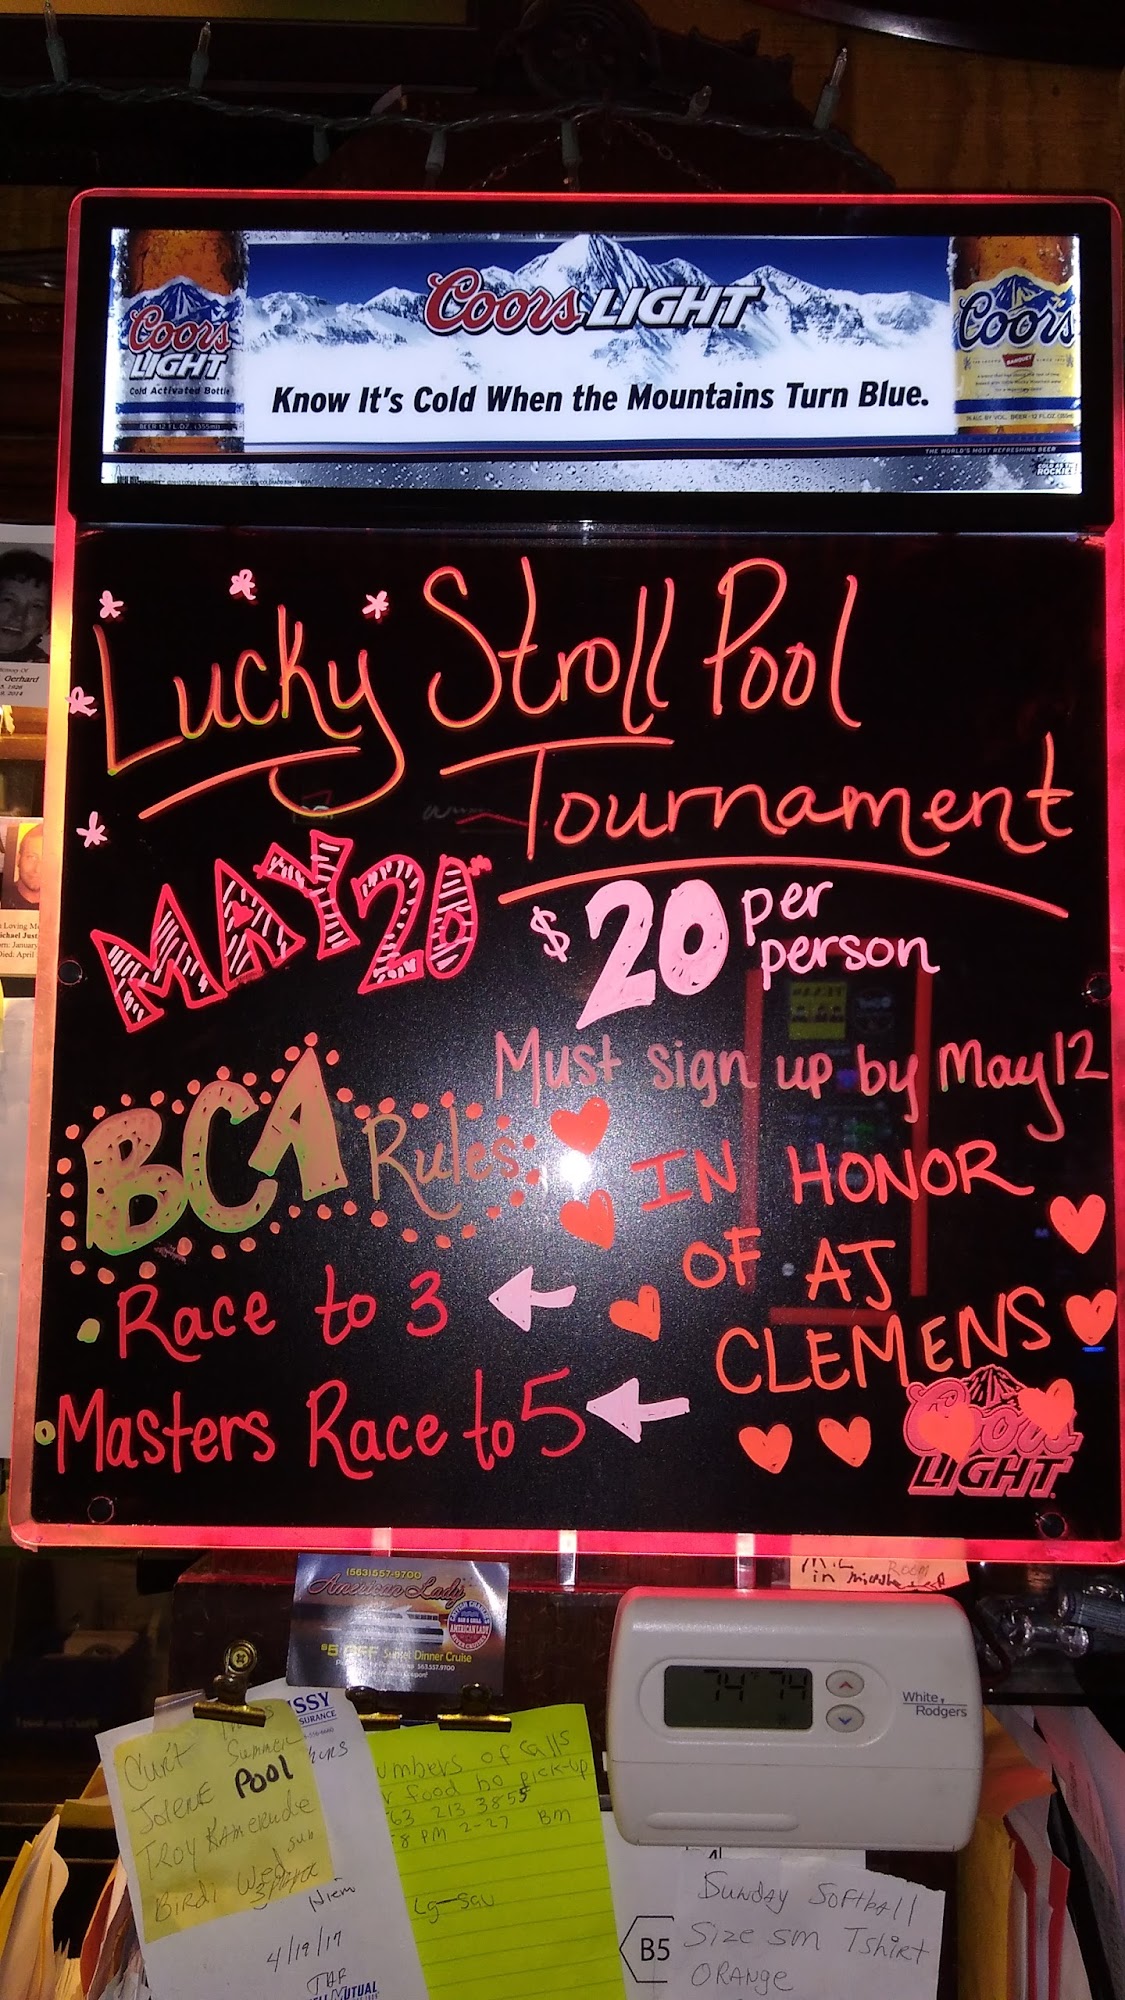 Coors LIGHT
Know It's Cold When the Mountains Turn Blue.
Coors
LIGHT
Cold Activated Bottle
BEER 12 FL. OZ. (355ml)
Coors
BANQUET
THE WORLD'S MOST REFRESHING BEER
Lucky Stroll Pool
Tournament
MAY 20
$20 per
person
Must sign up by May 12
BCA Rules
IN HONOR
OF AJ
CLEMENS
Race to 3
Masters Race to 5
Coors
LIGHT
Gerhard
(563)557-9700
American Lady
AMERICAN LADY
$5 OFF Sunset Dinner Cruise
White
Rodgers
74 74
SSY
SURANCE
Curt
Summer
JOLENE POOL
TROY
Birdi Wed
4/19/17
MUTUAL
umbers of calls
food no pick-up
63 213 3855
8 PM 2-27 BM
B5
Sunday Softball
Size sm Tshirt
ORANGE